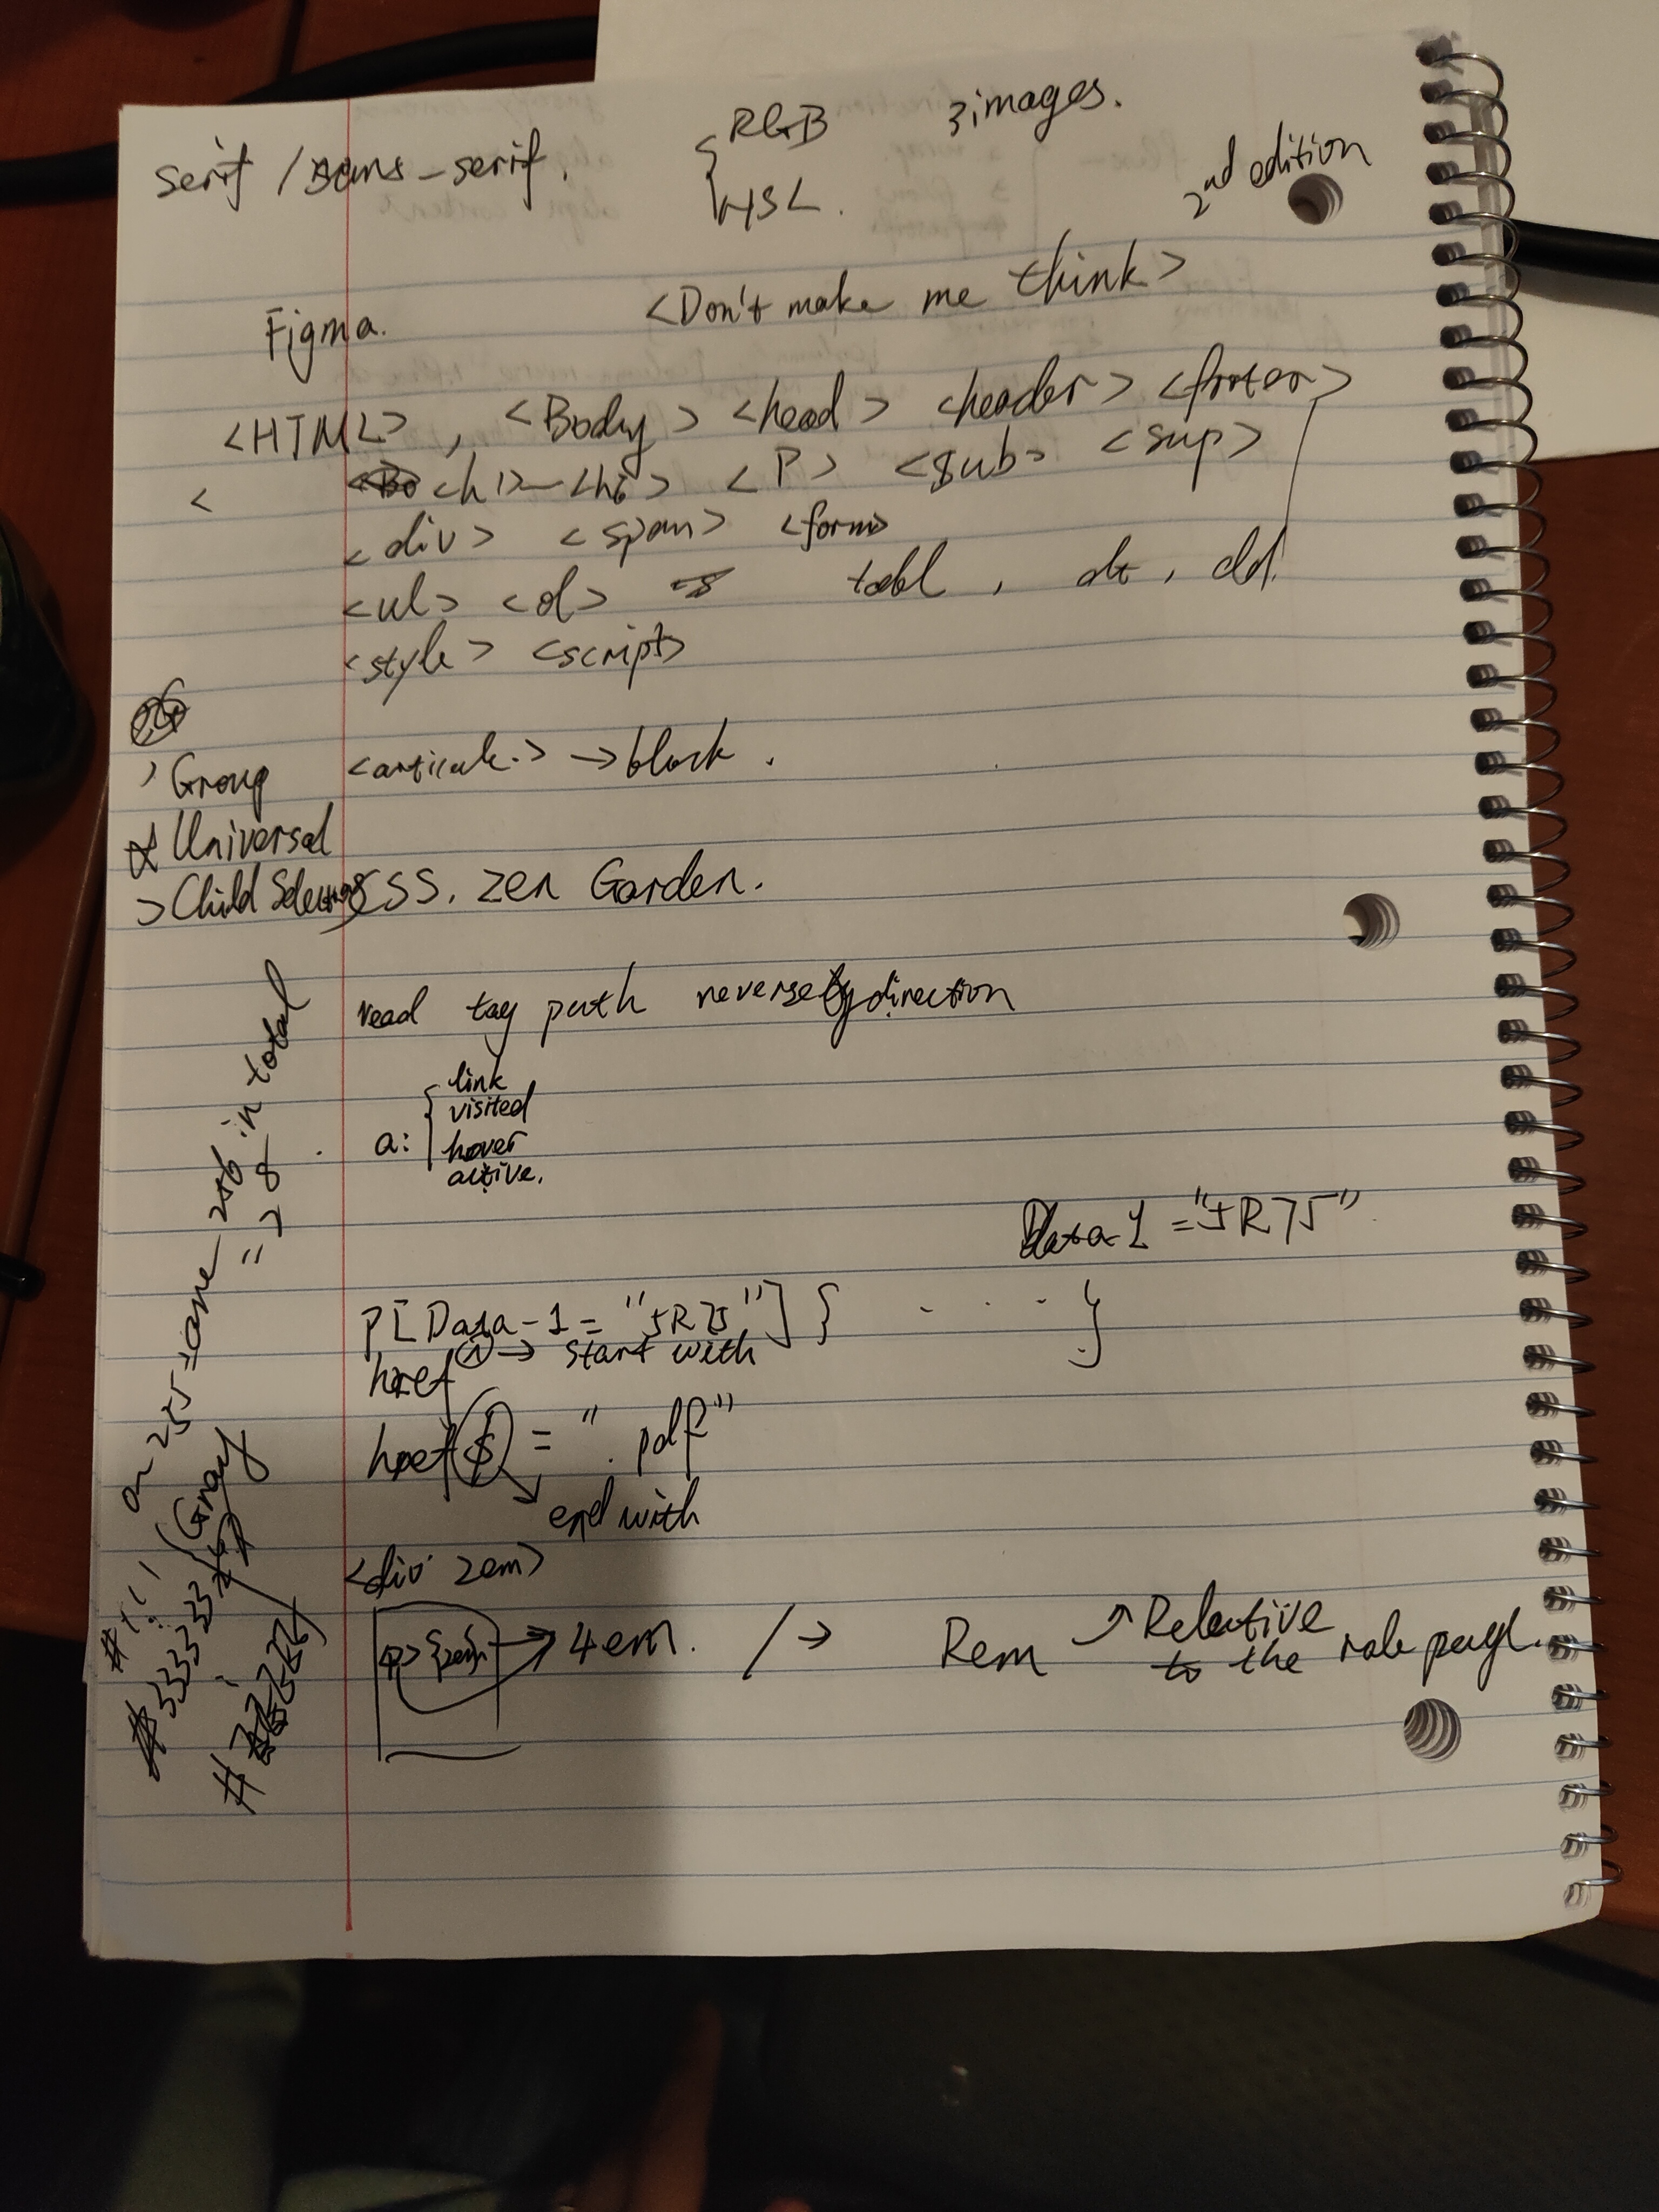 serif / sans-serif.
{ RGB
HSL.
3 images.
2nd edition
Figma.
<Don't make me think>
<HTML>, <Body> <head> <header> <footer>
< <h1>-<h6> <P> <sub> <sup>
<div> <span> <form>
<ul> <ol> tabl , dt , dd.
<style> <script>
, Group
<articale.> → block .
* Universal
> Child Selector
CSS. Zen Garden.
read tag path reversely direction
a: { link
visited
hover
active.
Data-1 = "5R75"
P[Data-1 = "5R75"] { . . . }
href ^ → start with
href $ = ".pdf"
end with
<div 2em>
<p> {2em} → 4em. / → Rem ↗ Relative
to the
256 in total
= 2^8
(Gray
#333333